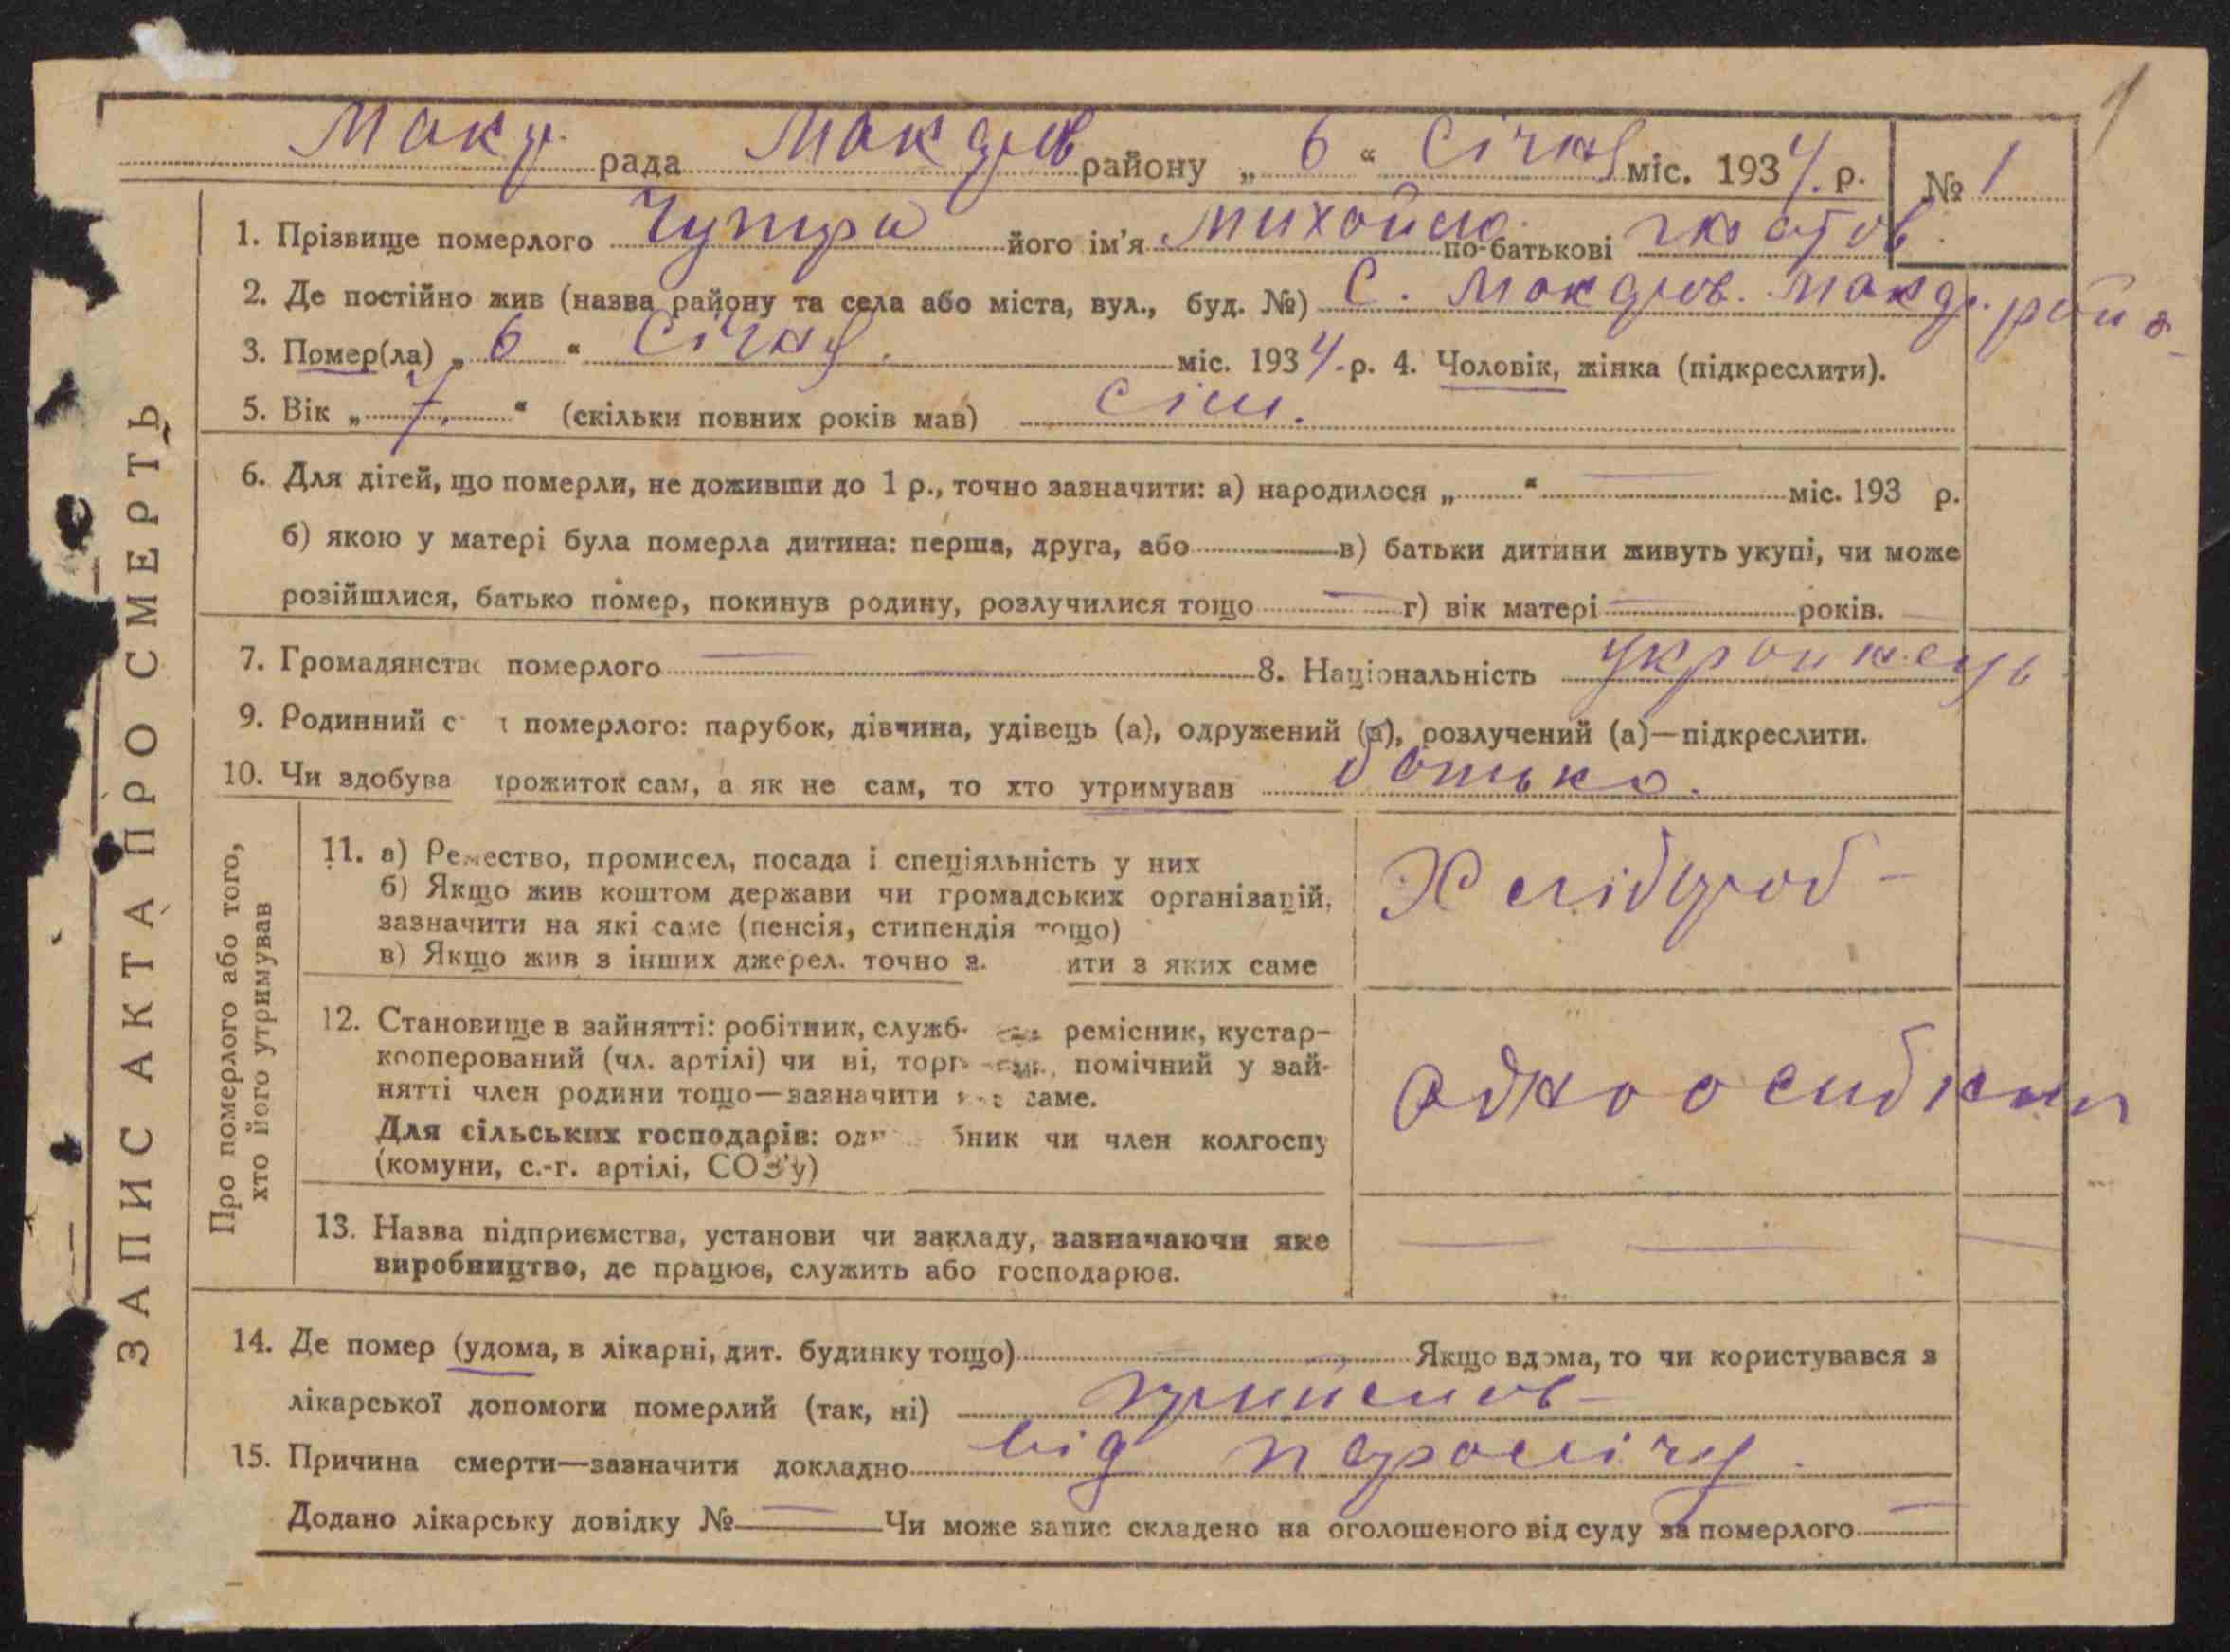 1
Манд. рада Манд району „ 6 “ Січня міс. 1934 р. № 1
1. Прізвище померлого Чупира його ім'я Михайло по-батькові
2. Де постійно жив (назва району та села або міста, вул., буд. №) С.
3. Помер(ла) „ 6 “ Січня. міс. 1934 р. 4. Чоловік, жінка (підкреслити).
5. Вік „ 7. “ (скільки повних років мав) сім.
6. Для дітей, що померли, не доживши до 1 р., точно зазначити: а) народилося „ “ — міс. 193 р.
б) якою у матері була померла дитина: перша, друга, або — в) батьки дитини живуть укупі, чи може
розійшлися, батько помер, покинув родину, розлучилися тощо — г) вік матері — років.
7. Громадянство померлого — 8. Національність українець
9. Родинний с т померлого: парубок, дівчина, удівець (а), одружений (а), розлучений (а)—підкреслити.
10. Чи здобува прожиток сам, а як не сам, то хто утримував батько.
Про померлого або того,
хто його утримував
11. а) Ремество, промисел, посада і спеціяльність у них
б) Якщо жив коштом держави чи громадських організацій,
зазначити на які саме (пенсія, стипендія тощо)
в) Якщо жив з інших джерел. точно з. ити з яких саме
Хлібороб -
12. Становище в зайнятті: робітник, служб. ремісник, кустар-
кооперований (чл. артілі) чи ні, торг помічний у зай-
нятті член родини тощо—зазначити саме.
Для сільських господарів: одн бник чи член колгоспу
(комуни, с.-г. артілі, СОЗ'у)
одноосибник
13. Назва підприємства, установи чи закладу, зазначаючи яке
виробництво, де працює, служить або господарює.
— —
14. Де помер (удома, в лікарні, дит. будинку тощо) Якщо вдома, то чи користувався з
лікарської допомоги померлий (так, ні)
15. Причина смерти—зазначити докладно від
Додано лікарську довідку № — Чи може запис складено на оголошеного від суду за померлого —
ЗАПИС АКТА ПРО СМЕРТЬ